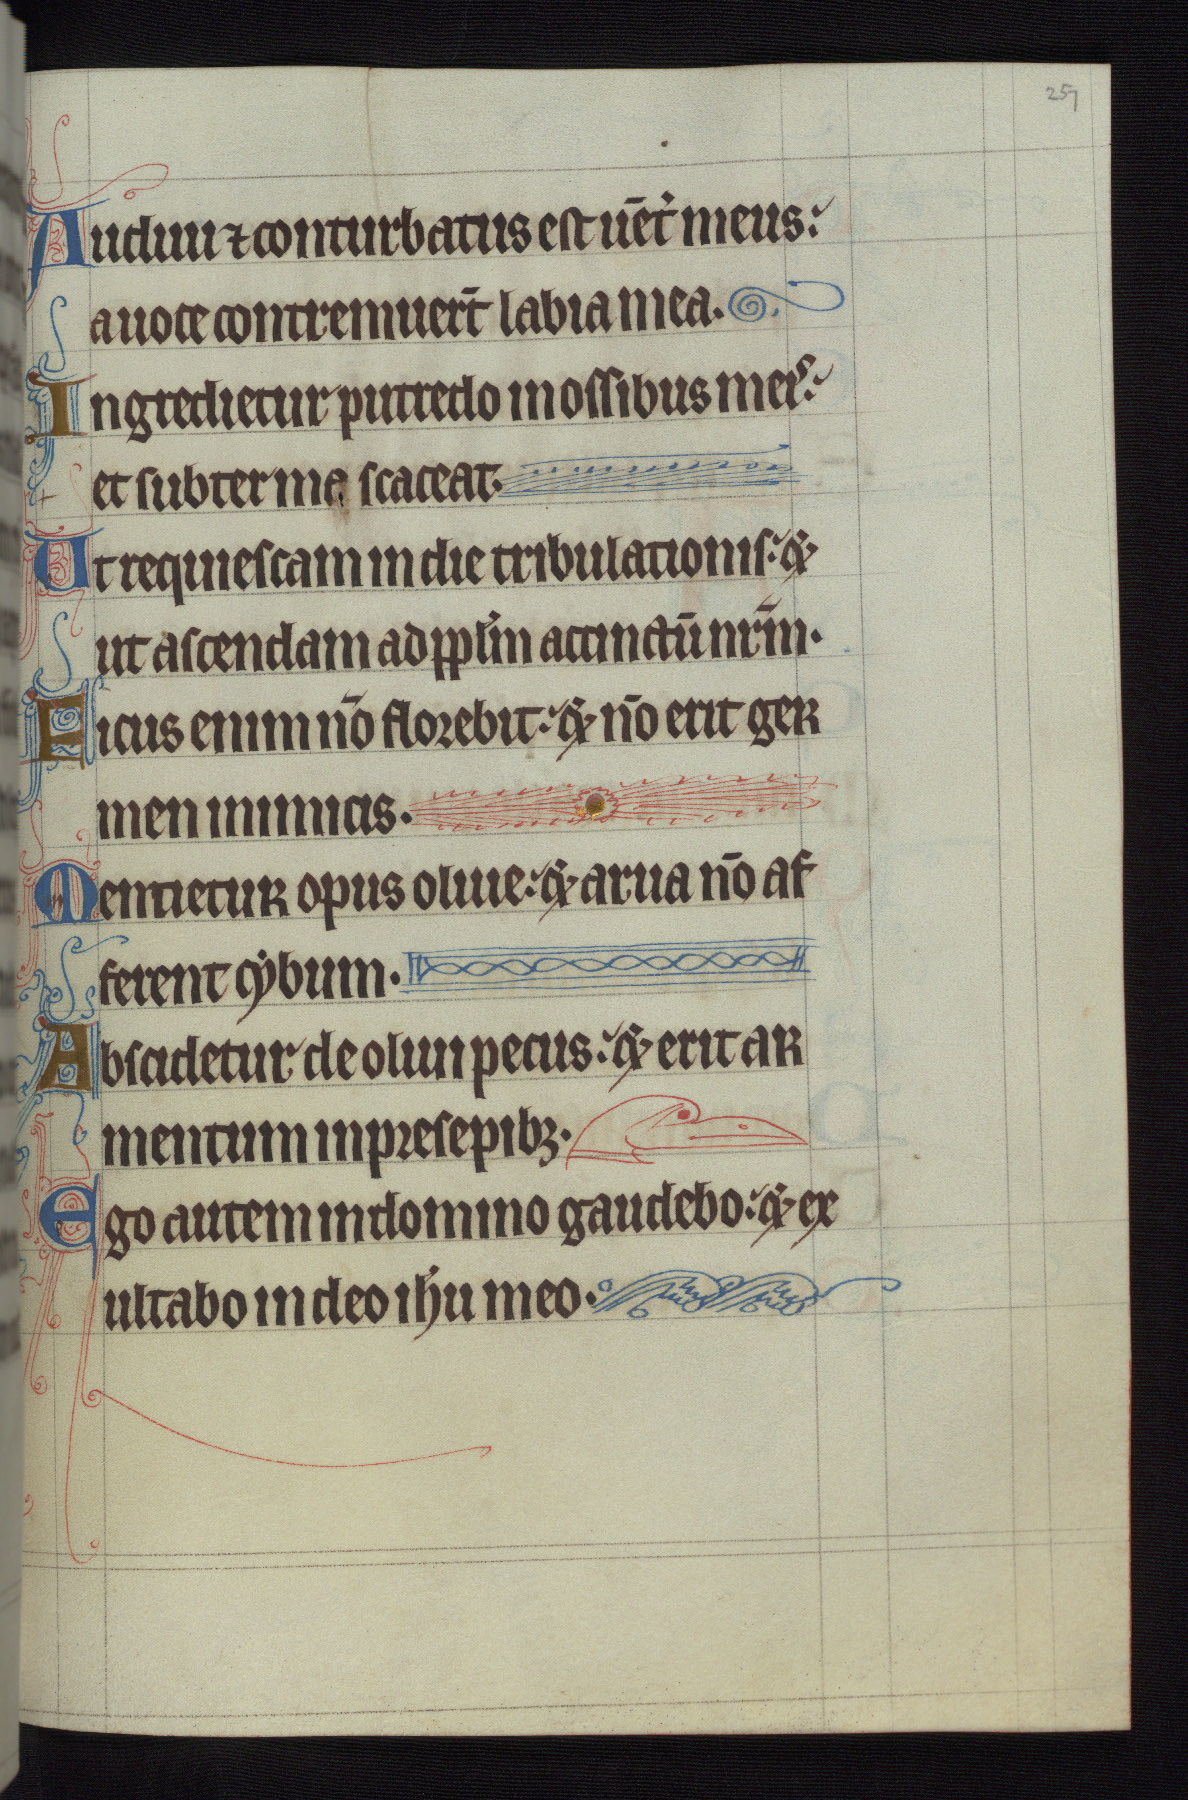 257
Audiui ⁊ conturbatus est uēt᷒ meus:
a uoce contremuerīt labia mea.
Ingredietur putredo in ossibus meis:
et subter me scateat.
Ut requiescam in die tribulationis: &
ut ascendam ad pp̄lm accinctū nr̄m.
Ficus enim nō florebit: & nō erit ger
men in uineis.
Mentietur opus oliue: & arua nō af
ferent cẏbum.
Abscidetur de ouili pecus: & erit ar
mentum in presepibꝫ.
Ego autem in domino gaudebo: & ex
ultabo in deo ih̄u meo.